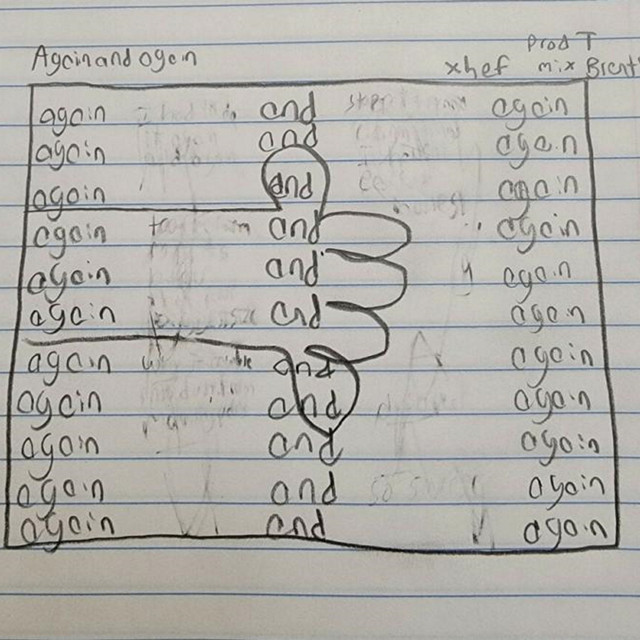 Prod T
Again and again xhef mix Brent
again and again
again and again
again and again
again and again
again and again
again and again
again and again
again and again
again and again
again and again
again and again